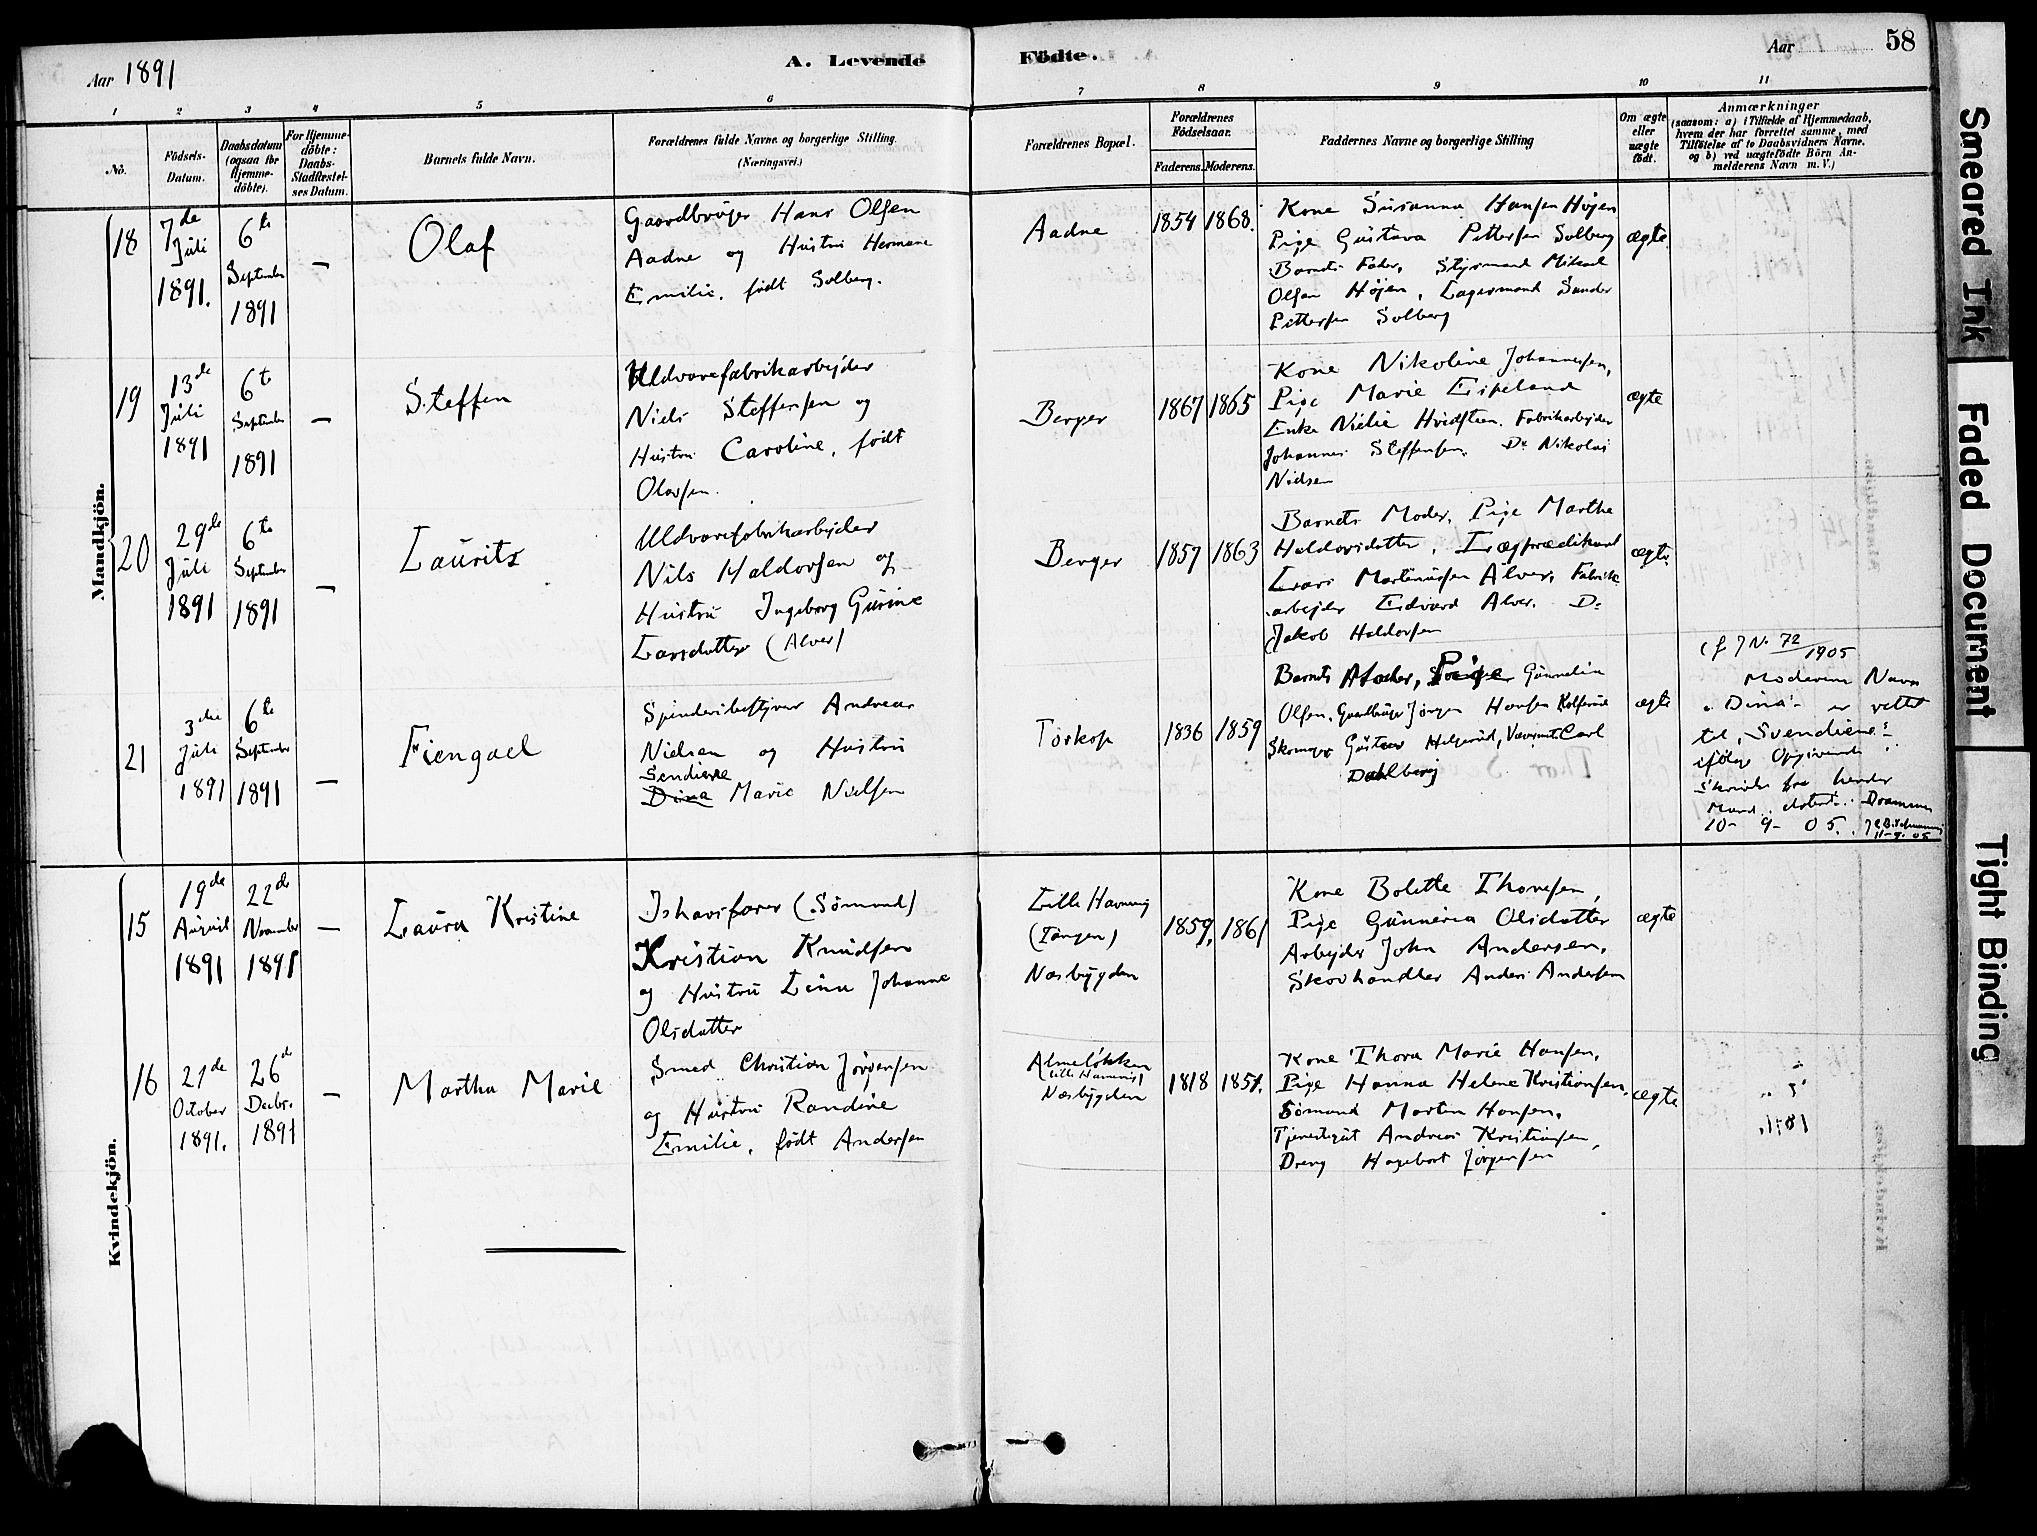 Aar 1891
A. Levende
Födte.
Aar
58
1
2
3
4
5
6
7
8
9
10
11
No.
Födsels-
Datum.
Daabsdatum
(ogsaa for
Hjemme-
döbte).
For Hjemme-
döbte:
Daabs-
Stadfæstel-
ses Datum.
Barnets fulde Navn.
Forældrenes fulde Navne og borgerlige Stilling.
(Næringsvei.)
Forældrenes Bopæl.
Forældrenes
Födselsaar.
Faderens.
Moderens.
Faddernes Navne og borgerlige Stilling
Om ægte
eller
uægte
födt.
Anmærkninger
(saasom: a) i Tilfælde af Hjemmedaab,
hvem der har forrettet samme, med
Tilföielse af to Daabsvidners Navne.
og b) ved uægtefödte Börn An-
melderens Navn m. V.)
Mandkjön.
18
7de
Juli
1891.
6te
September
1891
—
Olaf
Gaardbruger Hans Olsen
Aadne og Hustru Hermane
Emilie, født Solberg.
Aadne
1854
1868.
Kone Susanna Hansen Højen
Pige Gustava Pettersen Solberg
Barnets Fader, Styrmand Mikael
Olsen Højen, Lagermand Sander
Pettersen Solberg
ægte
19
13de
Juli
1891
6te
September
1891
—
Steffen
Uldvarefabrikarbejder
Niels Steffensen og
Hustru Caroline, født
Olavsen.
Berger
1867
1865
Kone Nikoline Johannesen,
Pige Marie Espeland
Enke Nielie Hvidsteen. Fabrikarbejder
Johannes Steffensen. Do Nikolai
Nielsen
ægte
20
29de
Juli
1891
6te
September
1891
—
Laurits
Uldvarefabrikarbejder
Nils Haldorsen og
Hustru Ingeborg Gurine
Larsdatter (Alver)
Berger
1857
1863
Barnets Moder, Pige Martha
Haldorsdatter, Lægprædikant
Lars Martinusen Alver, Fabrik
arbejder Edvard Alver. Do
Jakob Haldorsen
ægte
21
3die
Juli
1891
6te
September
1891
—
Fiengael
Spinderibestyrer Andreas
Nielsen og Hustru
Sendiene
Dina Marie Nielsen
Torkop
1836
1859
Barnets Moder, Pige Gunnelia
Olsen, Gaardbruger Jørgen Hansen Kolferud
Skomager Gustav Helgerud, Vævermst. Carl
Dahlberg
ægte
(cf J No 72/1905
Moderens Navn
"Dina" er rettet
til "Svendiene"
ifølge Opgivende
Skrivelse fra hendes
Mand, dateret Drammen
10-9-05.
11-9-05
Kvindekjön.
15
19de
August
1891
22de
November
1891
—
Laura Kristine
Ishavsfarer (Sømand)
Kristian Knudsen
og Hustru Lina Johanne
Olsdatter
Lille Havnvig
(Tangen)
Nesbygden
1859,
1861
Kone Bolette Thoresen,
Pige Gunneria Olsdatter
Arbejder John Andersen,
Skovhandler Anders Andersen
ægte
16
21de
October
1891.
26de
Decbr.
1891
—
Martha Marie
Smed Christian Jørgensen
og Hustru Randine
Emilie, født Andersen
Almeløkken
(Lille Havnvig)
Nesbygden
1818
1851.
Kone Thora Marie Hansen,
Pige Hanna Helene Kristiansen,
Sømand Martin Hansen,
Tjenestegut Andreas Kristiansen,
Dreng Hagebart Jørgensen
ægte
Smeared Ink
Faded Document
Tight Binding